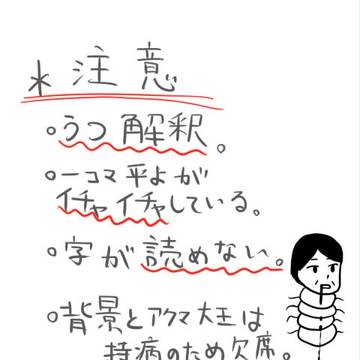 *注意
○うつ解釈。
○一コマ平よが
イチャイチャしている。
○字が読めない。
○背景とアクマ大王は
持病のため欠席。